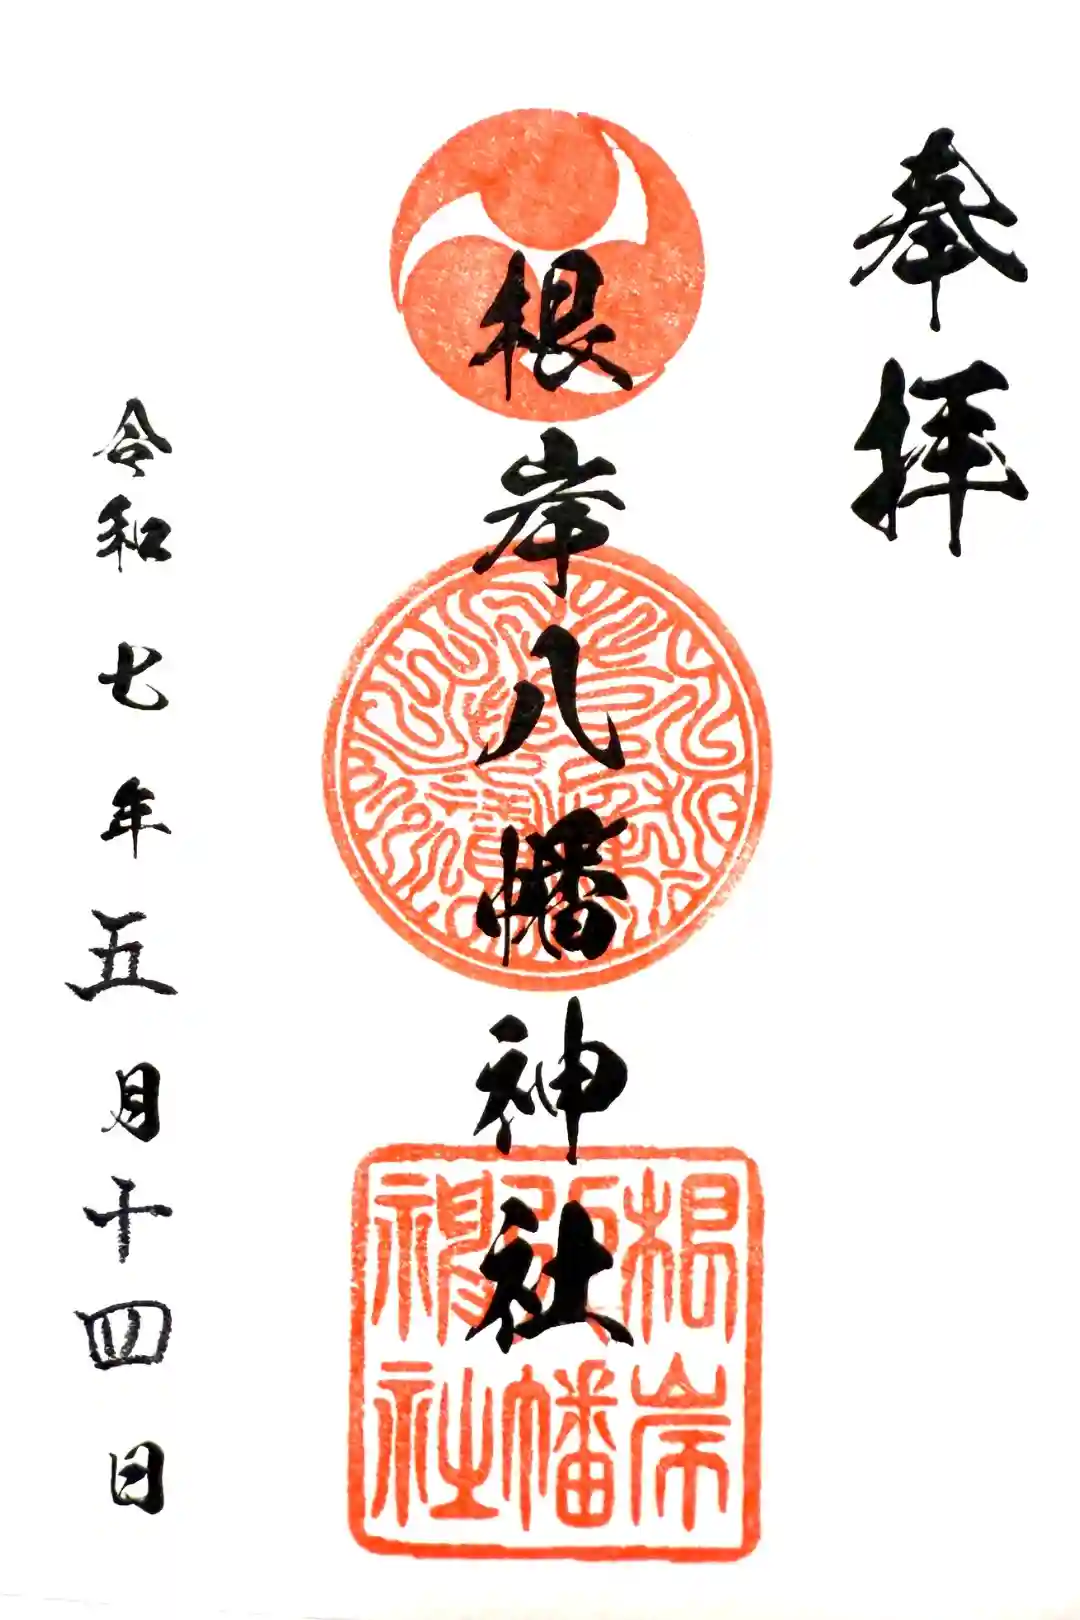 奉拝
根岸八幡神社
令和七年五月十四日
根岸
八幡
神社